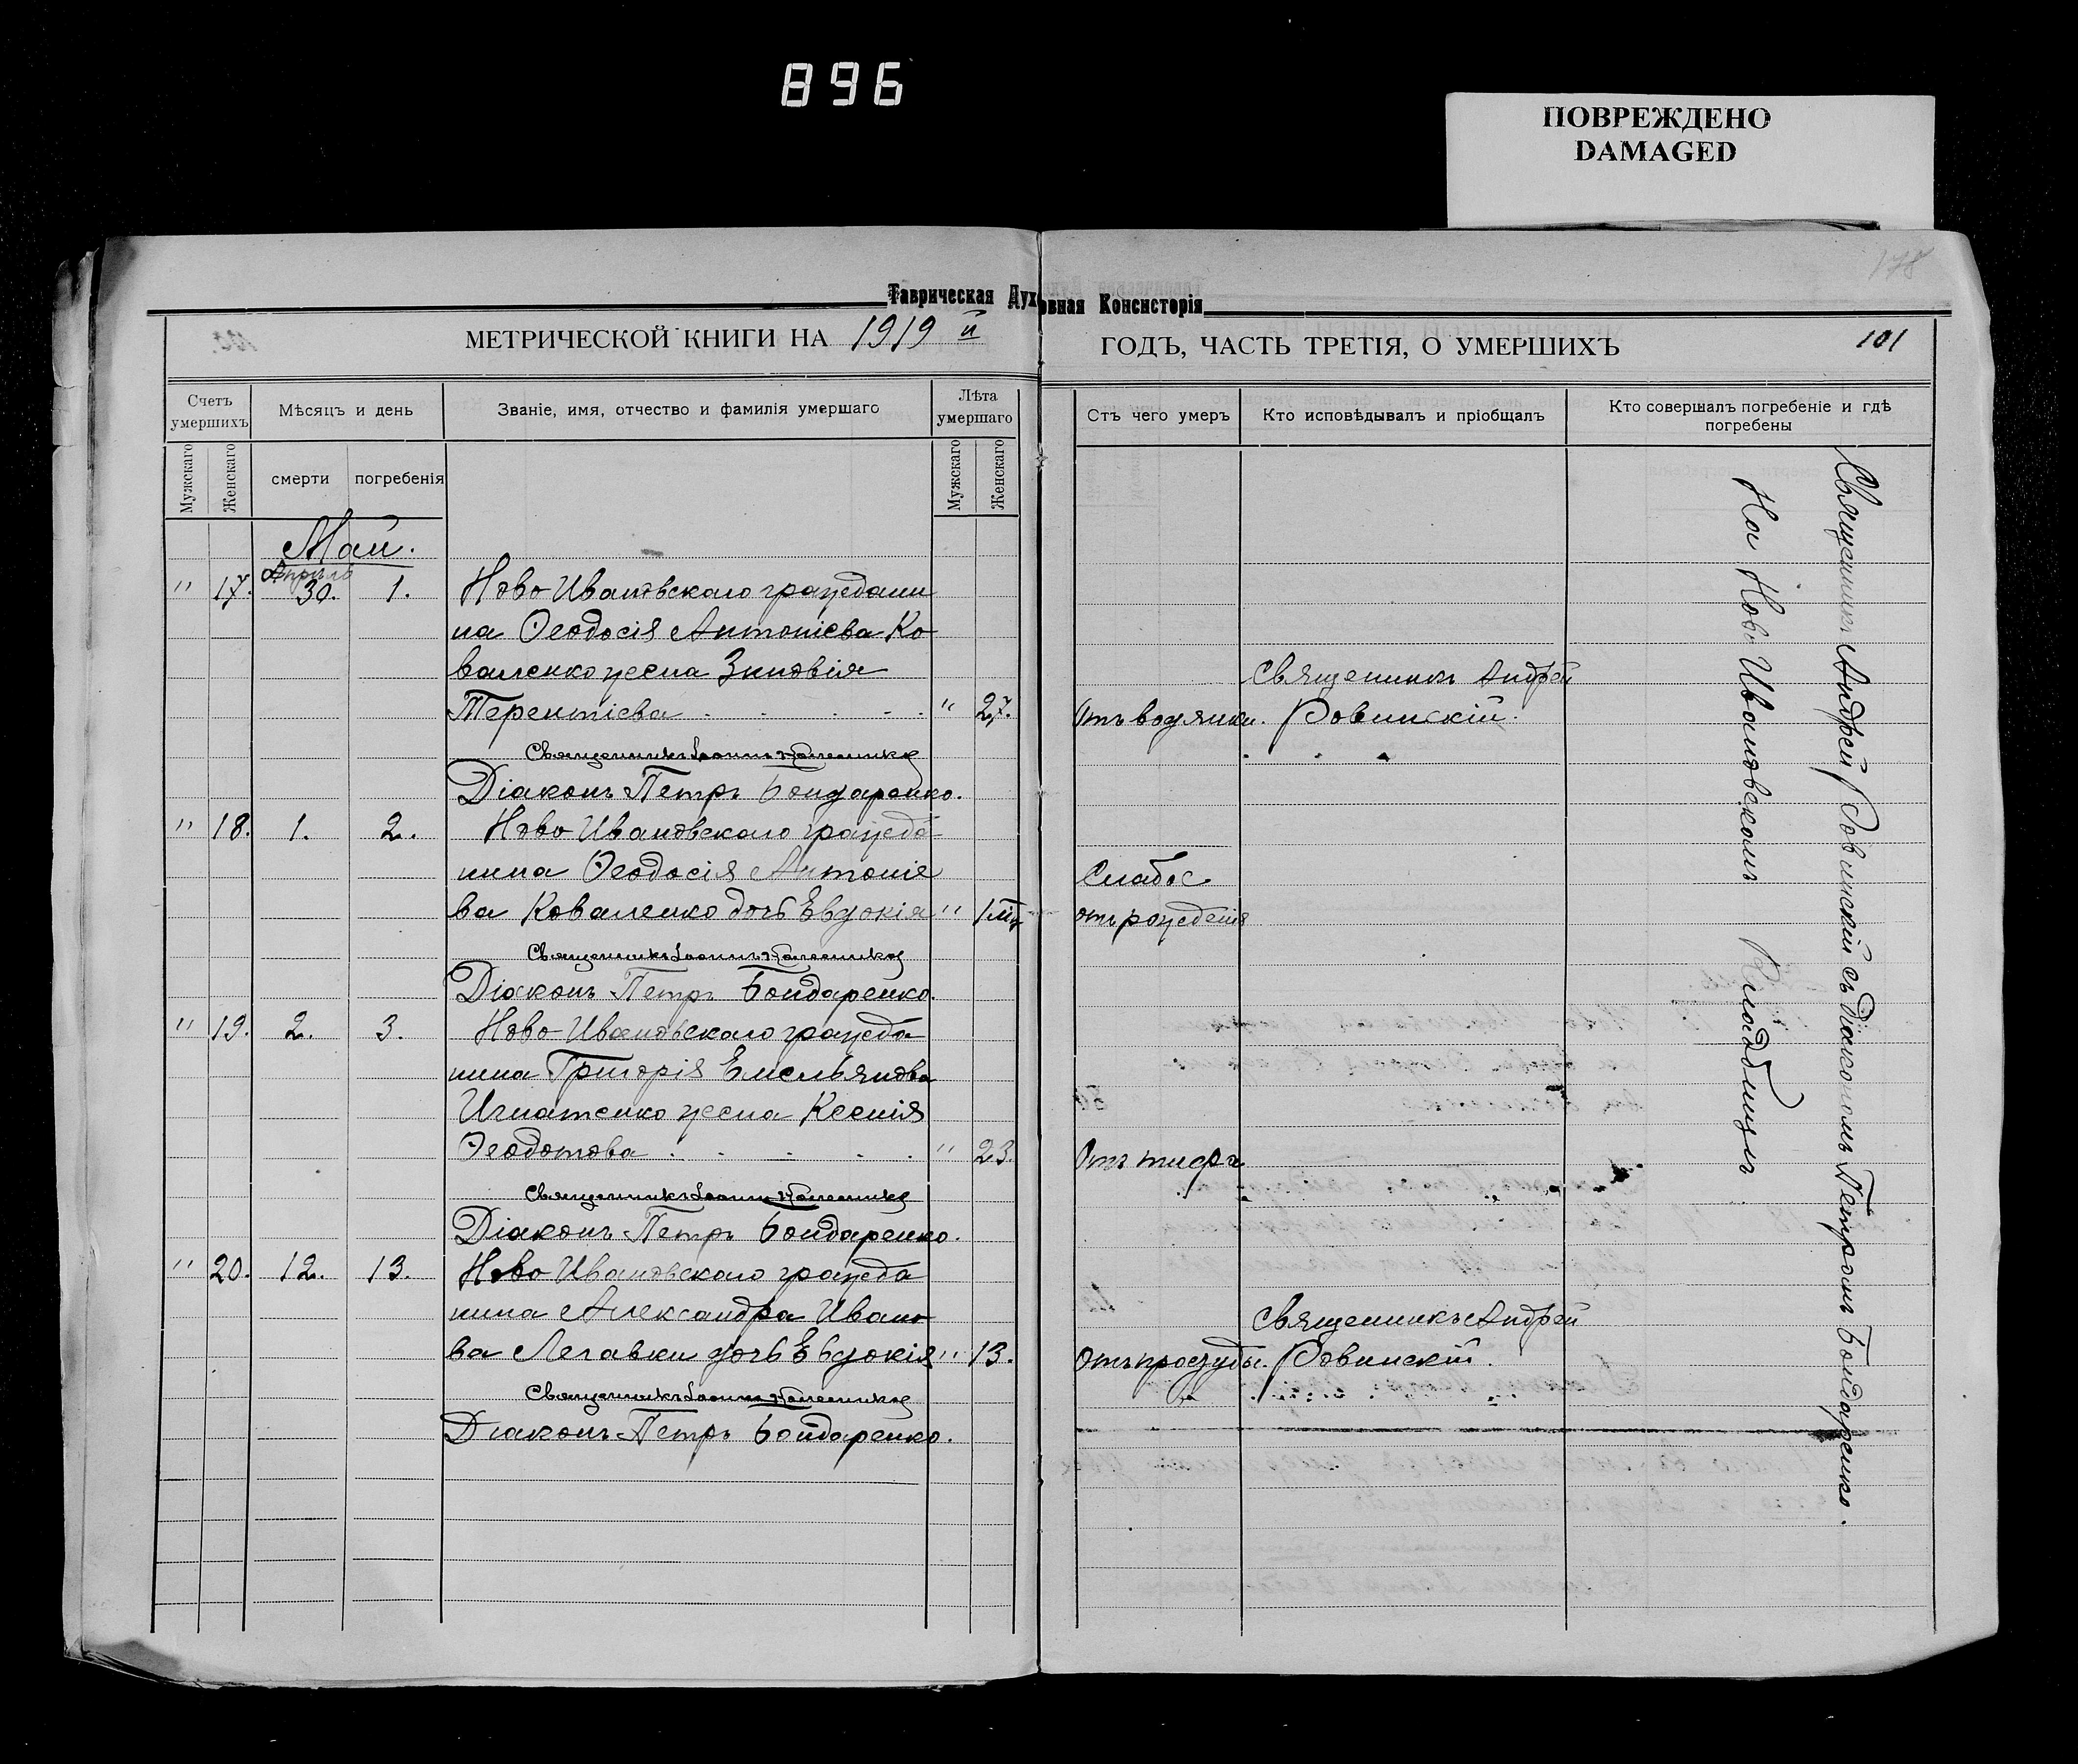 896
ПОВРЕЖДЕНО
DAMAGED
178
Таврическая Духовная Консисторія
МЕТРИЧЕСКОЙ КНИГИ НА 1919 й
ГОДЪ, ЧАСТЬ ТРЕТІЯ, О УМЕРШИХЪ
101
Счетъ умершихъ
Мѣсяцъ и день
Званіе, имя, отчество и фамилія умершаго
Лѣта умершаго
Отъ чего умеръ
Кто исповѣдывалъ и пріобщалъ
Кто совершалъ погребеніе и гдѣ погребены
Мужскаго
Женскаго
смерти
погребенія
Мужскаго
Женскаго
Май.
Апрѣль
" 17. 30. 1. Ново Ивановскаго граждани
на Ѳеодосія Антоніева Ко
валенко жена Зиновія
Терентіева . . . . . " 27. Отъ водянки. Священникъ Андрей
Ровинскій.
Священникъ Іоаннъ
Діаконъ Петръ Бондаренко.
" 18. 1. 2. Ново Ивановскаго гражда-
нина Ѳеодосія Антоніе
ва Коваленко дочь Евдокія " 1 м. Слабос.
отъ рожденія
Священникъ Іоаннъ
Діаконъ Петръ Бондаренко.
" 19. 2. 3. Ново Ивановскаго гражда
нина Григорія Емельянова
Игнатенко жена Ксенія
Ѳеодотова . . . . . " 23. Отъ тифа
Священникъ Іоаннъ
Діаконъ Петръ Бондаренко.
" 20. 12. 13. Ново Ивановскаго гражда
нина Александра Ивано
ва Легавки дочь Евдокія " 13. Отъ простуды. Священникъ Андрей
Ровинскій.
Священникъ Іоаннъ
Діаконъ Петръ Бондаренко.
Священникъ Андрей Ровинскій съ діакономъ Петромъ Бондаренко.
На Ново Ивановскомъ кладбищѣ